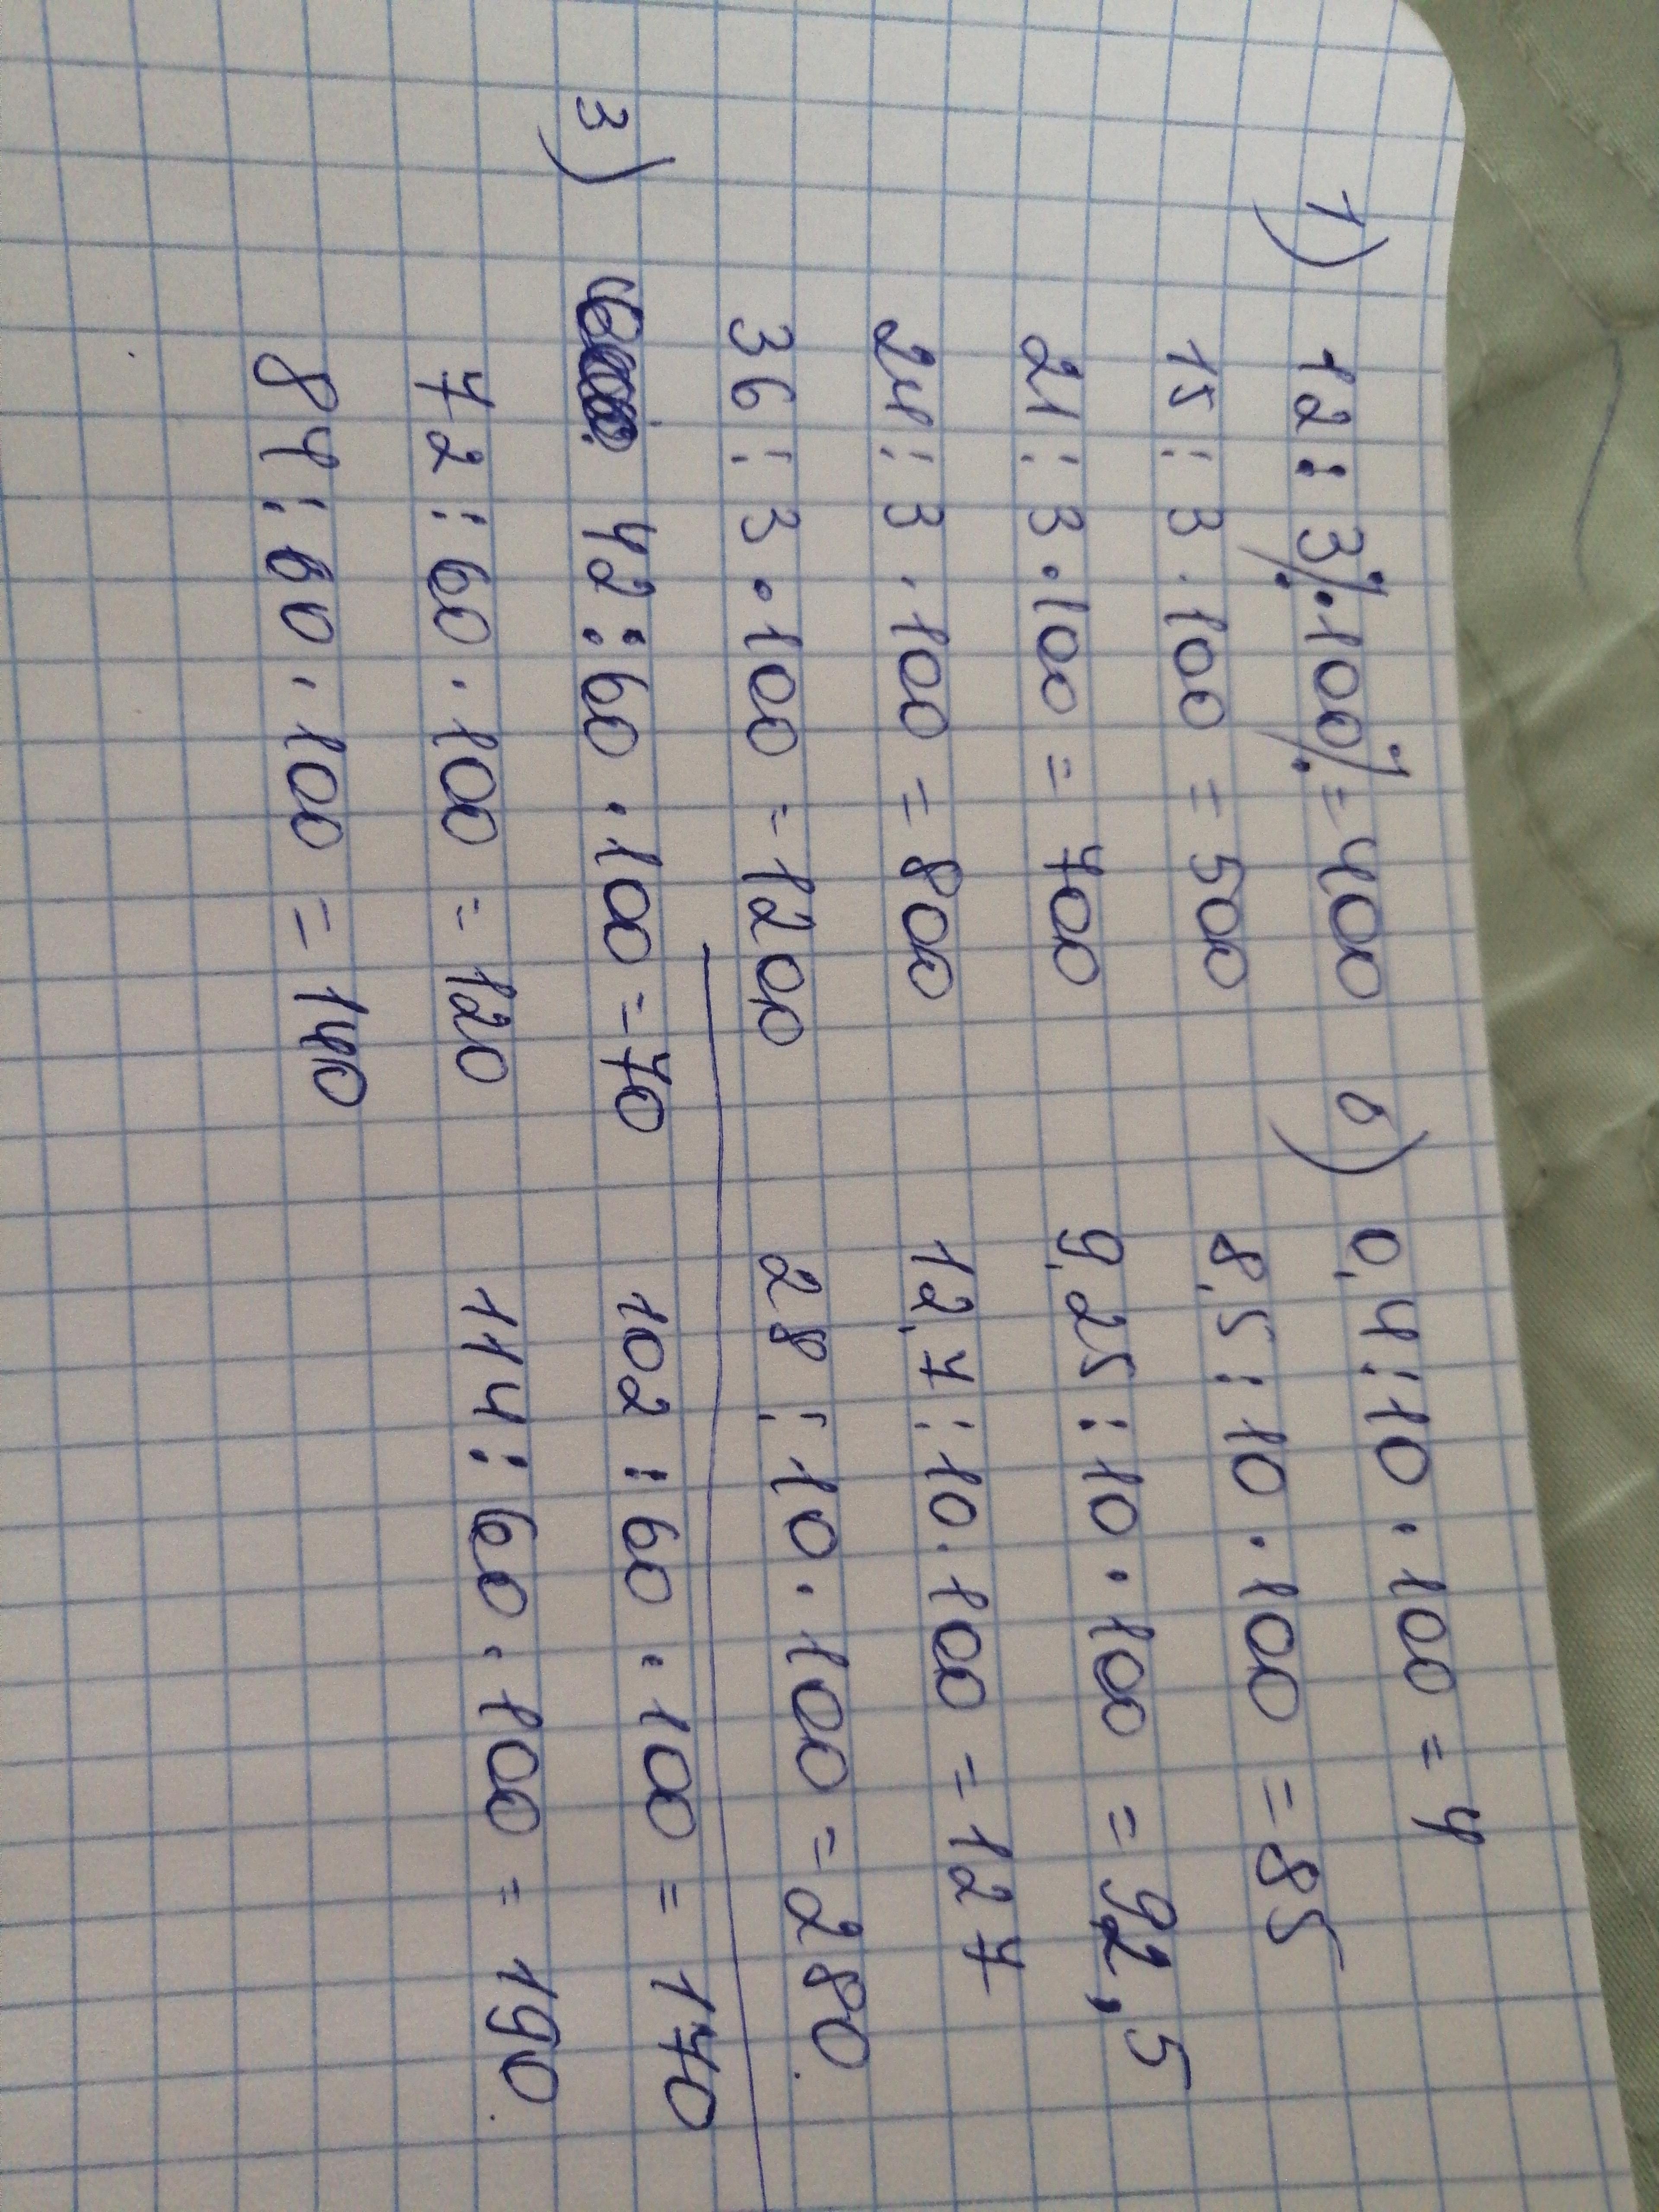 1) 12 : 3% · 100% = 400
15 : 3 · 100 = 500
21 : 3 · 100 = 700
24 : 3 · 100 = 800
36 : 3 · 100 = 1200
б) 0,4 : 10 · 100 = 4
8,5 : 10 · 100 = 85
9,25 : 10 · 100 = 92,5
12,7 : 10 · 100 = 127
28 : 10 · 100 = 280
3) 42 : 60 · 100 = 70
72 : 60 · 100 = 120
84 : 60 · 100 = 140
102 : 60 · 100 = 170
114 : 60 · 100 = 190